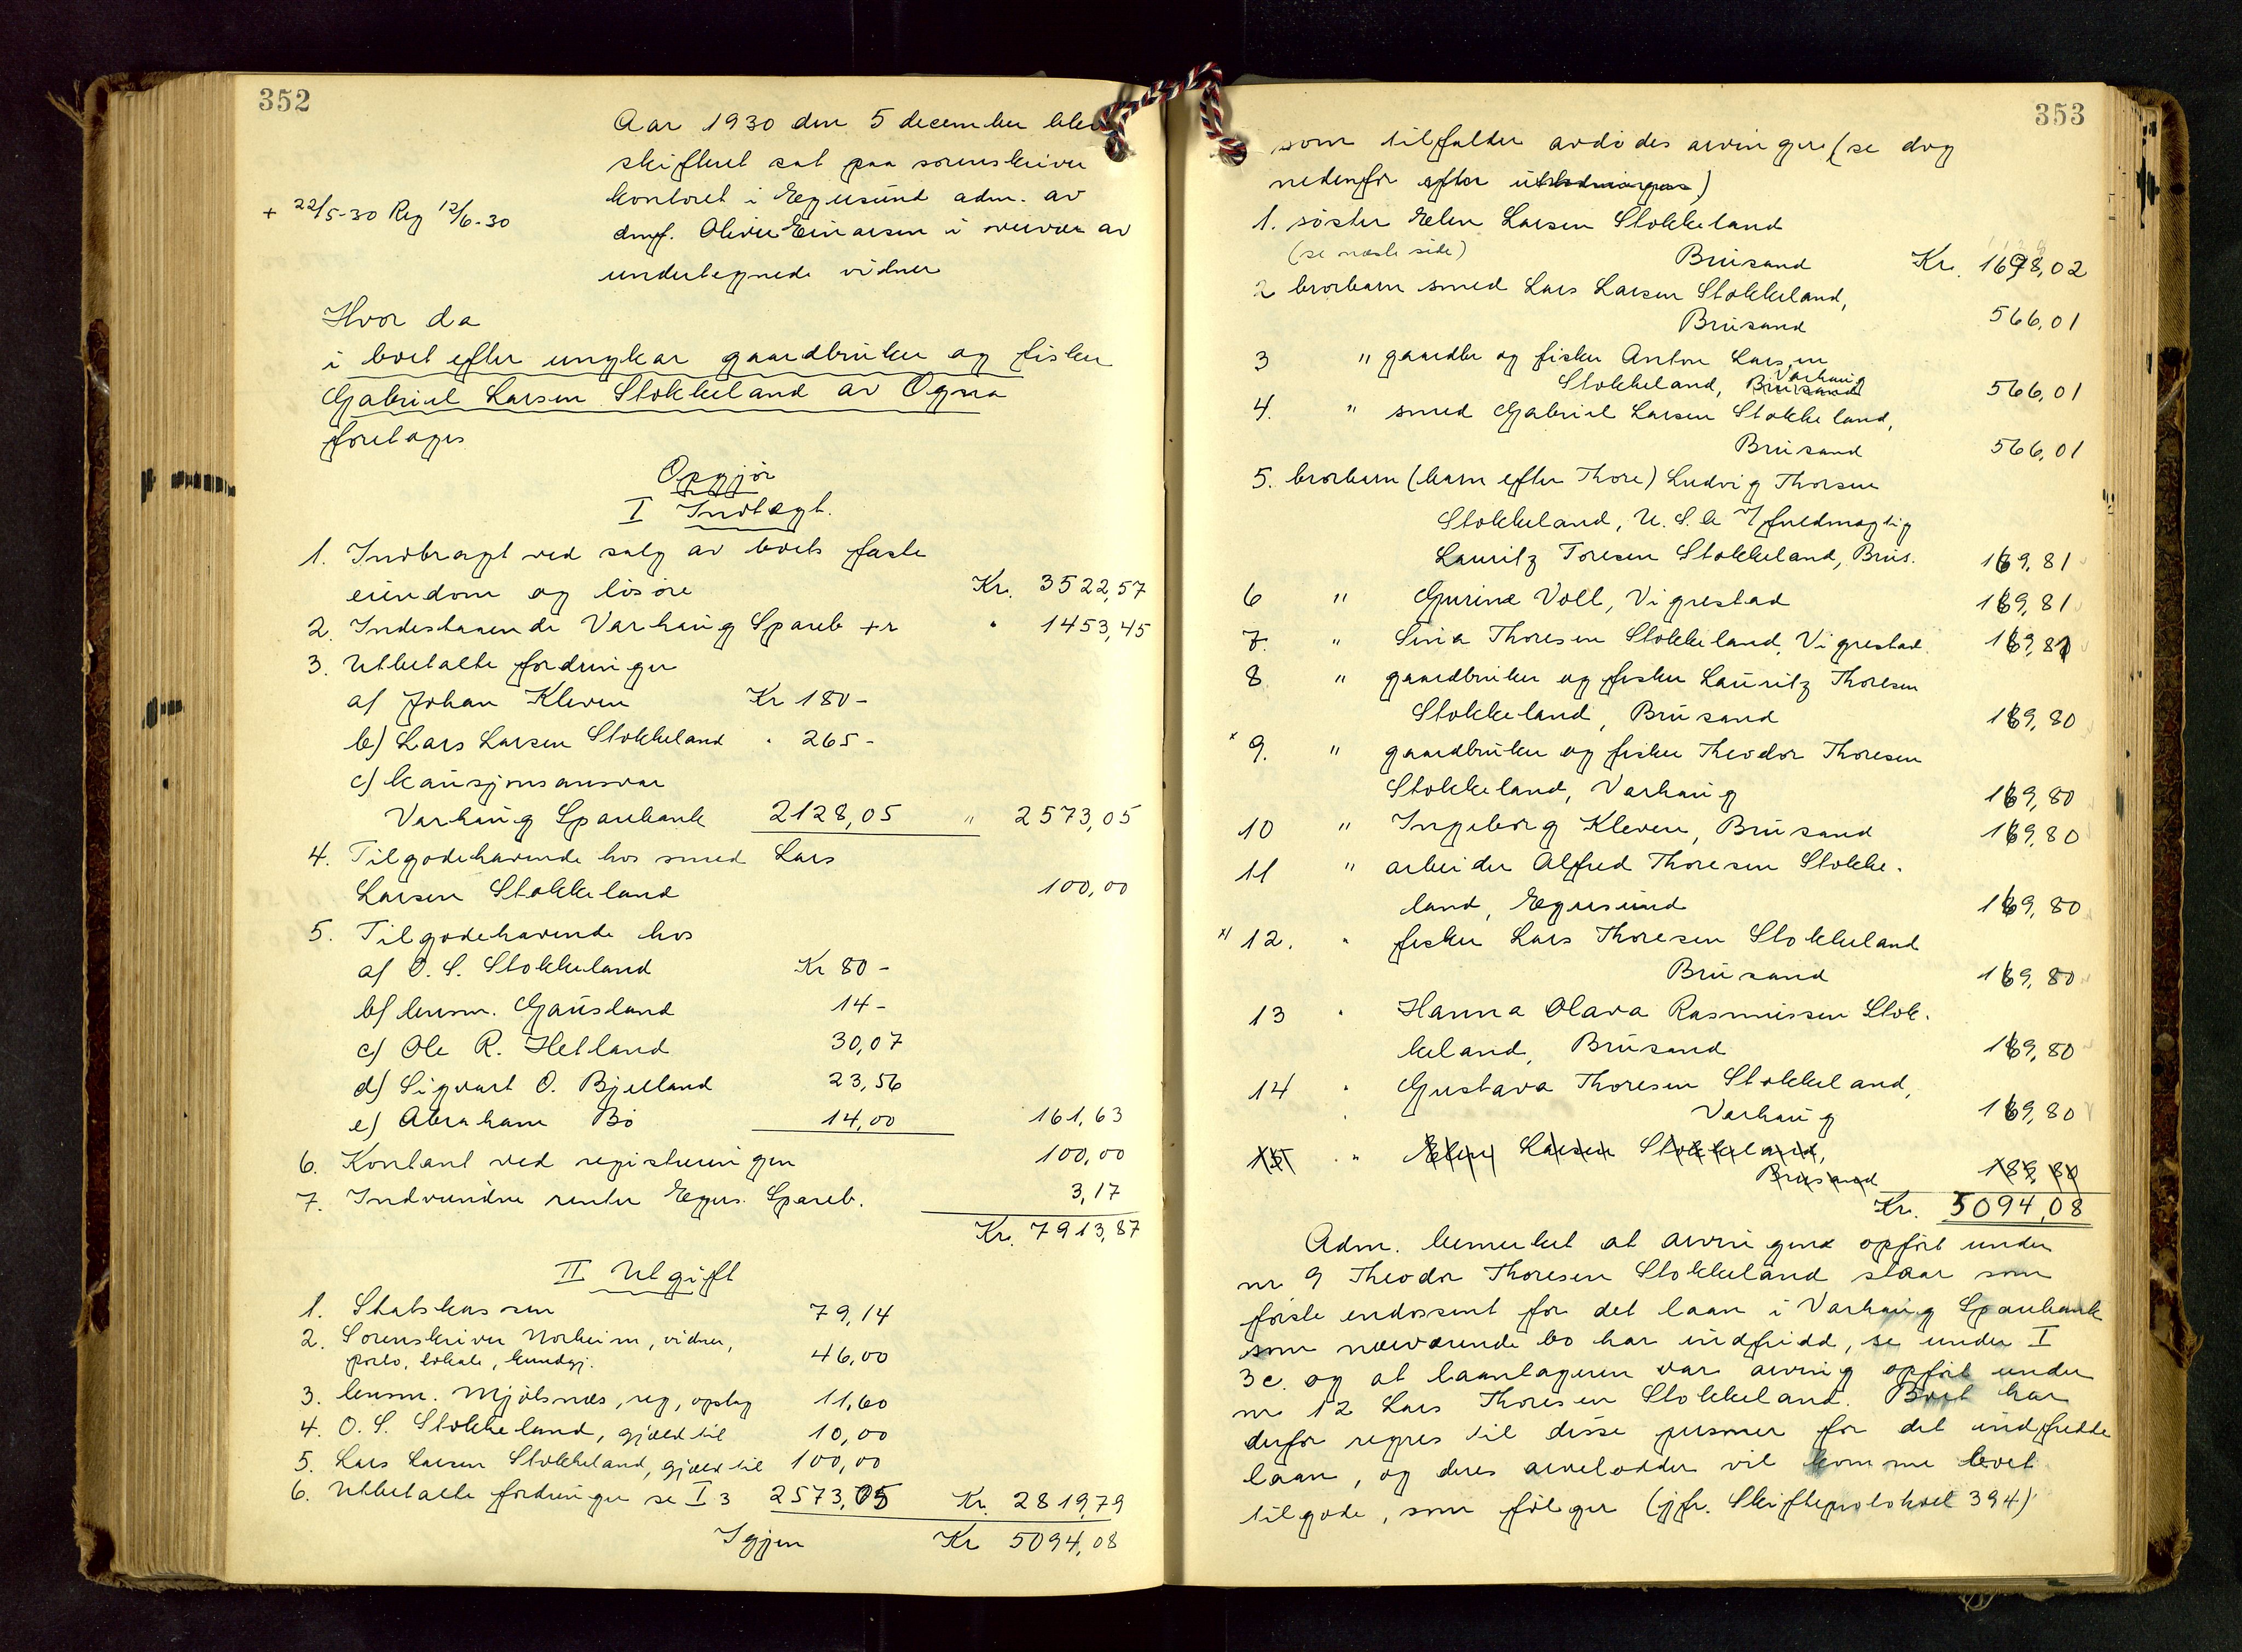 352
Aar 1930 den 5 december blev
skifteret sat paa sorenskriver
kontoret i Egersund adm. av
dmf. Oliver Einarsen i overvær av
undertegnede vidner
+ 22/5-30 Reg 12/6-30
Hvor da
i boet efter ungkar gaardbruker og fisker
Gabriel Larsen Stokkeland av Ogna
foretages
Opgjør
I Indtægt.
1. Indbragt ved salg av boets faste
eiendom og løsøre Kr. 3522,57
2. Indestaaende Varhaug Spareb +r " 1453,45
3. Utbetalte fordringer
a) Johan Kleven Kr 180 -
b) Lars Larsen Stokkeland " 265 -
c) kausjonsansvar
Varhaug Sparebank 2128,05 " 2573,05
4. Tilgodehavende hos smed Lars
Larsen Stokkeland 100,00
5. Tilgodehavende hos
a) O. S. Stokkeland Kr 80 -
b) lensm. Gausland 14 -
c) Ole R. Hetland 30,07
d) Sigvart O. Bjelland 23,56
e) Abraham Bø 14,00 161,63
6. Kontant ved registreringen 100,00
7. Indvundne renter Egers. Spareb. 3,17
Kr. 7913,87
II Utgift
1. Statskassen 79,14
2. Sorenskriver Norheim, vidner,
porto, lokale, kundgj. 46,00
3. lensm. Mjølsnæs, reg, opsteg 11,60
4. O. S. Stokkeland, gjæld til 10,00
5. Lars Larsen Stokkeland, gjæld til 100,00
6. Utbetalte fordringer se I 3 2573,05 Kr. 2819,79
Igjen Kr 5094,08
353
som tilfalder avdødes arvinger (se dog
nedenfor efter )
1. søster Elen Larsen Stokkeland
(se næste side) Brusand Kr. 1698,02
2 brorbarn smed Lars Larsen Stokkeland,
Brusand 566,01
3 " gaardbr og fisker Anton Larsen
Varhaug
Stokkeland, Brusand 566,01
4. " smed Gabriel Larsen Stokkeland,
Brusand 566,01
5. brorbarn (barn efter Thore) Ludvig Thorsen
Stokkeland, U. S. A v/ fuldmægtig
Lauritz Toresen Stokkeland, Brus. 169,81
6 " Gurine Voll, Vigrestad 169,81
7. " Sina Thoresen Stokkeland, Vigrestad 169,81
8 " gaardbruker og fisker Lauritz Thoresen
Stokkeland, Brusand 169,80
x 9. " gaardbruker og fisker Theodor Thoresen
Stokkeland, Varhaug 169,80
10 " Ingeborg Kleven, Brusand 169,80
11 " arbeider Alfred Thoresen Stokke-
land, Egersund 169,80
x) 12. " fisker Lars Thoresen Stokkeland
Brusand 169,80
13 " Hanna Olava Rasmussen Stok-
keland, Brusand 169,80
14 " Gustava Thoresen Stokkeland,
Varhaug 169,80
15 " Elen Larsen Stokkeland,
Brusand 189,80
Kr. 5094,08
Adm. bemerket at arvingene opført under
nr 9 Theodor Thoresen Stokkeland staar som
første endossent for det laan i Varhaug Sparebank
som nærværende bo har indfridd, se under I
3c. og at laantageren var arving opført under
nr 12 Lars Thoresen Stokkeland. Boet har
derfor regres til disse personer for det indfridde
laan, og deres arvelodder vil komme boet
tilgode, som følger (jfr. Skifteprotokoll 394)